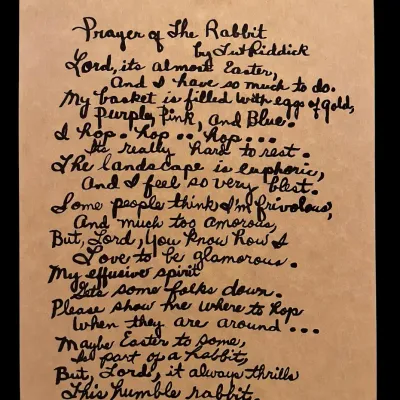 Prayer of The Rabbit
by Tut Riddick
Lord, its almost Easter,
And I have so much to do.
My basket is filled with eggs of gold,
Purple, Pink, and Blue.
I hop.. hop .. hop ...
Its really hard to rest.
The landscape is euphoric,
And I feel so very blest.
Some people think I'm frivolous,
And much too amorous,
But, Lord, you know how I
Love to be glamorous.
My effusive spirit
Gets some folks down.
Please show me where to hop
When they are around ...
Maybe Easter to some,
Is part of a habit,
But, Lord, it always thrills
This humble rabbit.